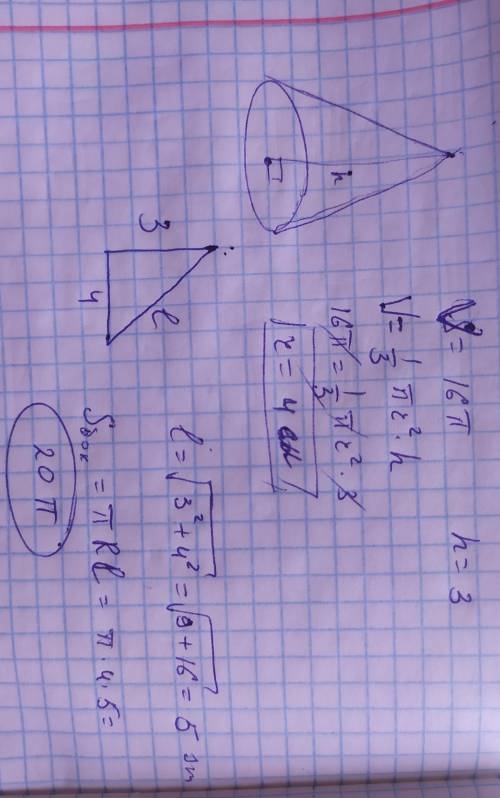 V = 16π h = 3
V = 1/3 πr² · h
16π = 1/3 πr² · 3
r = 4 см
h
3
4
l
l = √(3² + 4²) = √(9 + 16) = 5 sm
Sбок = πRl = π · 4 · 5 =
20π